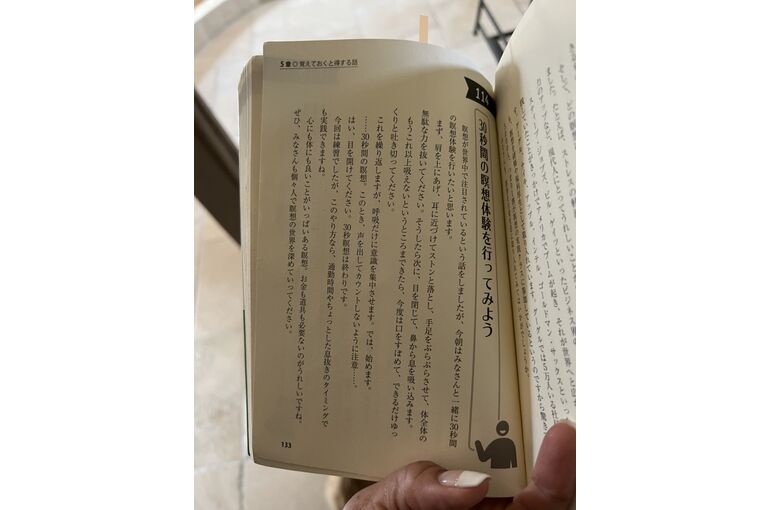 ストレスの軽
現代人にとってうれしいこと
ビル・ゲイツといったビジネス界の
ブームが起き、それが世界へと広
インテル、ゴールドマン・サックスといっ
グーグルでは5万人いる社
いるというのですから驚き
5章◎覚えておくと得する話
114
30秒間の瞑想体験を行ってみよう
瞑想が世界中で注目されているという話をしましたが、今朝はみなさんと一緒に30秒間
の瞑想体験を行いたいと思います。
まず、肩を上にあげ、耳に近づけてストンと落とし、手足をぶらぶらさせて、体全体の
無駄な力を抜いてください。そうしたら次に、目を閉じて、鼻から息を吸い込みます。
もうこれ以上吸えないというところまできたら、今度は口をすぼめて、できるだけゆっ
くりと吐き切ってください。
これを繰り返しますが、呼吸だけに意識を集中させます。では、始めます。
……30秒間の瞑想。このとき、声を出してカウントしないように注意……。
はい、目を開けてください。30秒瞑想は終わりです。
今回は練習でしたが、このやり方なら、通勤時間やちょっとした息抜きのタイミングで
も実践できますね。
心にも体にも良いことがいっぱいある瞑想。お金も道具も必要ないのがうれしいですね。
ぜひ、みなさんも個々人で瞑想の世界を深めていってください。
133